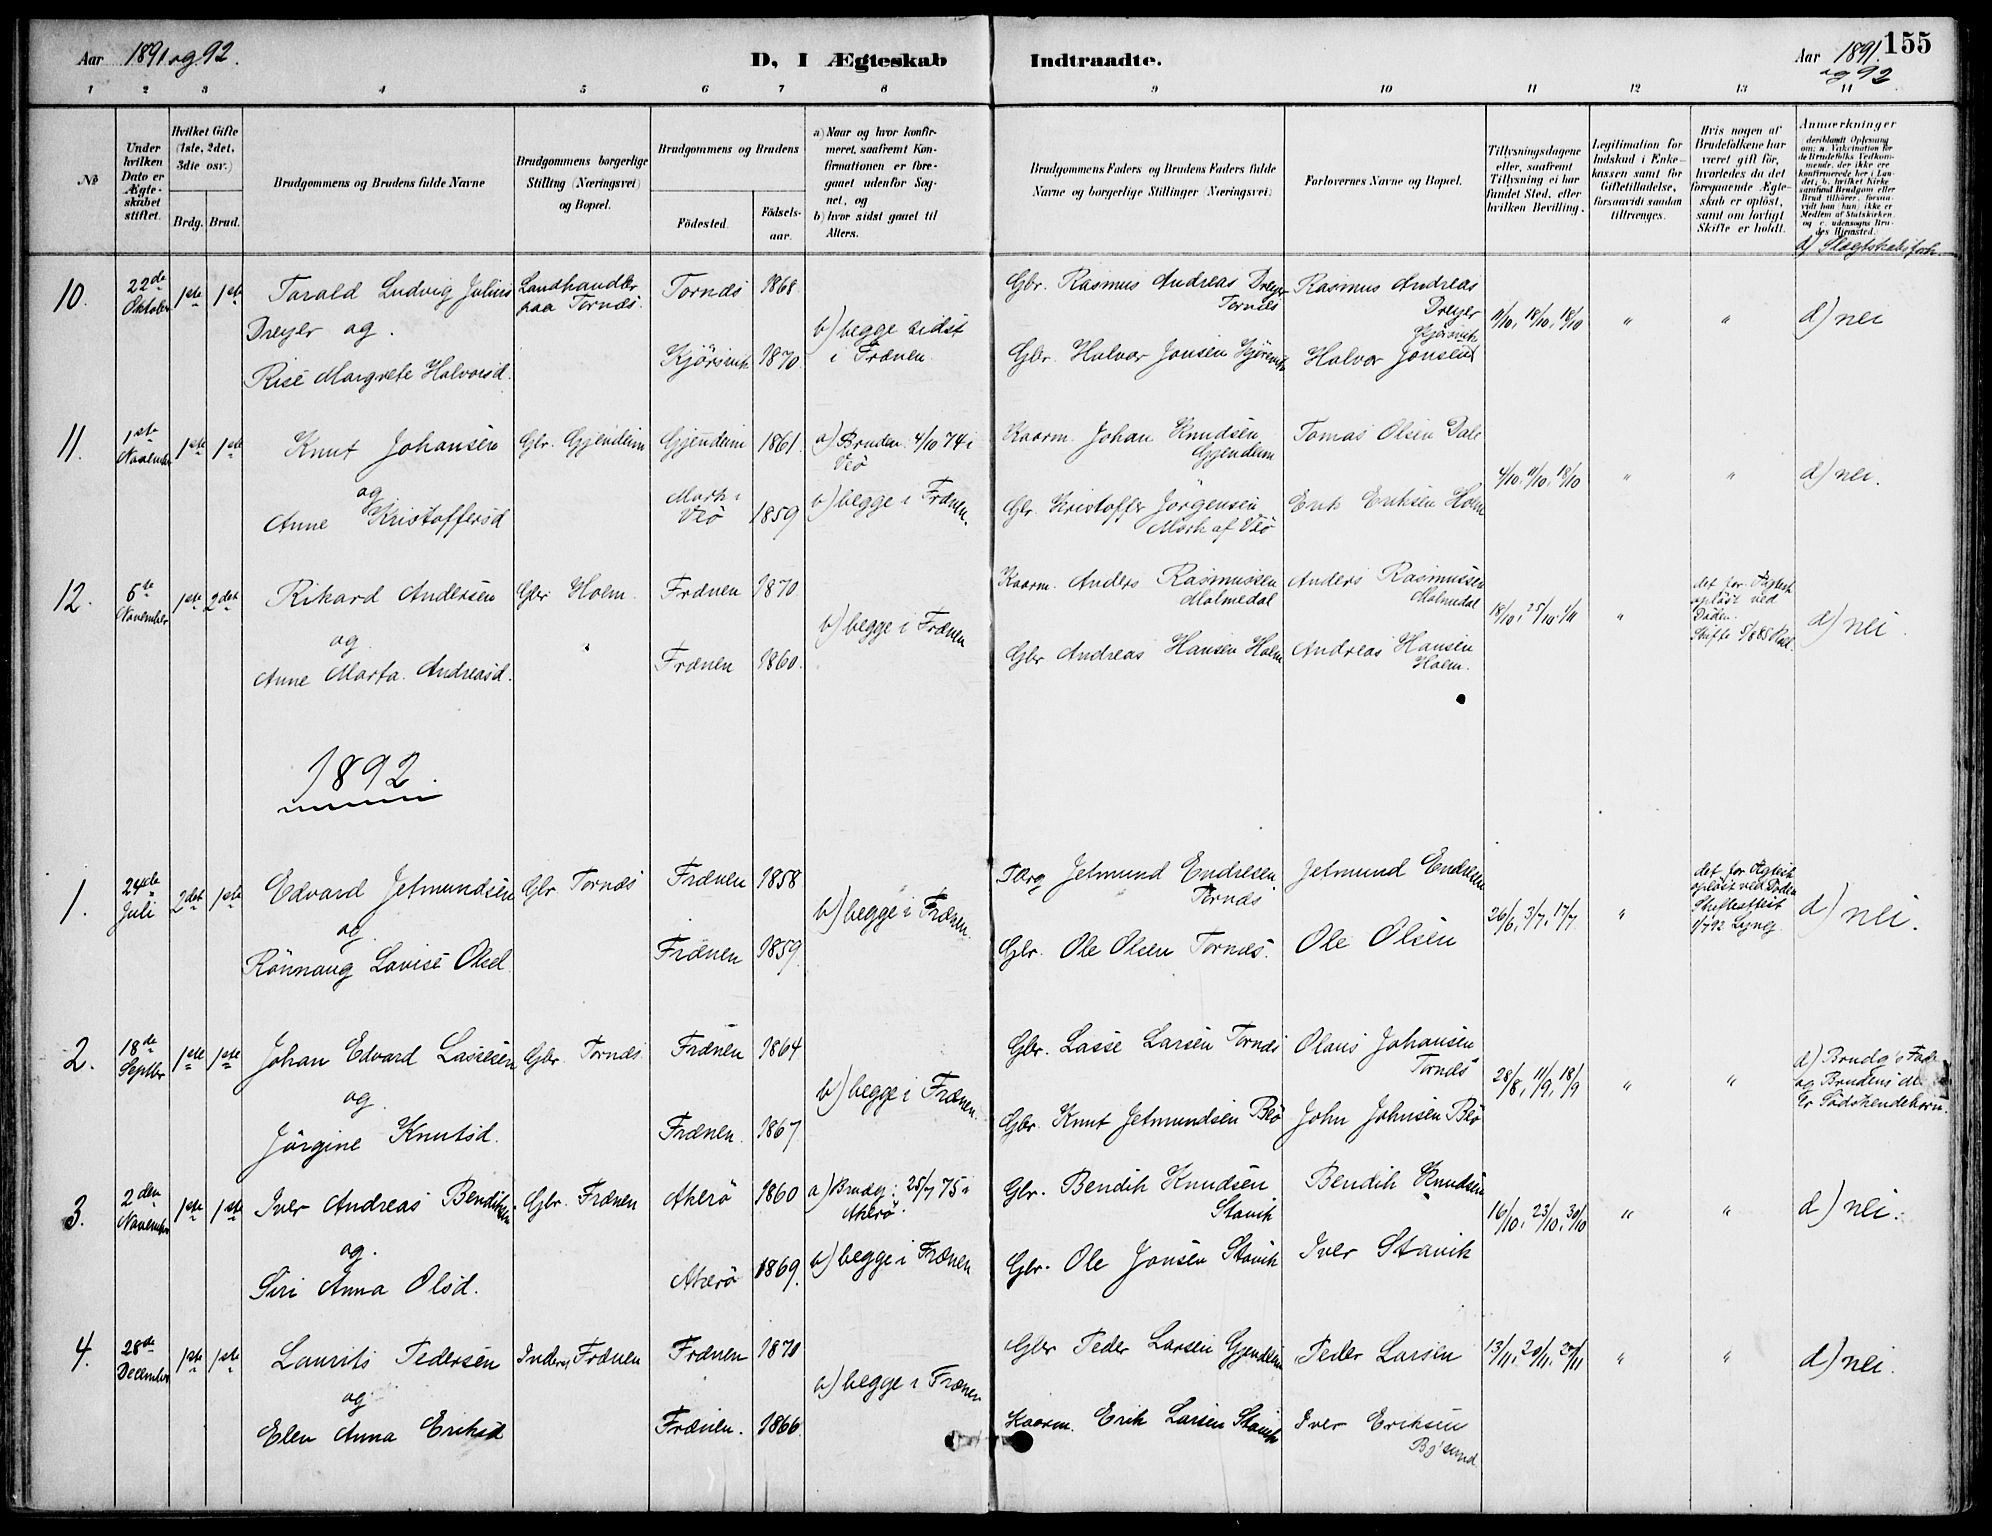 Aar 1891 og 92.
D, I Ægteskab Indtraadte.
Aar 1891 og 92
155
1 2 3 4 5 6 7 8 9 10 11 12 13 14
No
Under hvilken Dato er Ægteskabet stiftet.
Hvilket Gifte (1ste, 2det, 3die osv.)
Brdg. Brud.
Brudgommens og Brudens fulde Navne
Brudgommens borgerlige Stilling (Næringsvei) og Bopæl.
Brudgommens og Brudens
Fødested. Fødselsaar.
a) Naar og hvor konfirmeret, saafremt Konfirmationen er foregaaet udenfor Sognet, og
b) hvor sidst gaaet til Alters.
Brudgommens Faders og Brudens Faders fulde Navne og borgerlige Stillinger (Næringsvei)
Forlovernes Navne og Bopæl.
Tillysningsdagene eller, saafremt Tillysning ei har fundet Sted, efter hvilken Bevilling.
Legitimation for Indskud i Enkekassen samt for Giftetilladelse, forsaavidt saadan tiltrænges.
Hvis nogen af Brudefolkene har været gift før, hvorledes da det foregaaende Ægteskab er opløst, samt om lovligt Skifte er holdt.
Anmerkninger
deriblandt Oplysning om: a. Vakcination for de Brudefolks Vedkommende, der ikke ere konfirmerede her i Landet; b. hvilket Kirkesamfund Brudgom eller Brud tilhører, forsaavidt han (hun) ikke er Medlem af Statskirken, og c. udensogns Brudes Hjemsted.
d) Slægtskabsforh.
10. 22de Oktober 1ste 1ste Tarald Ludvig Julius Landhandler paa Tornæs. Tornæs 1868 Gbr. Rasmus Andreas Dreyer Tornæs Rasmus Andreas Dreyer
Dreyer og b) begge sidst i Frænen. 11/10, 18/10, 18/10 " " d) nei
Rise Margrete Halvorsd. Kjørsvik 1870 Gbr. Halvor Jonsen Kjørsvik Halvor Jonsen Kjørsvik
11. 1ste November 1ste 1ste Knut Johansen Gbr. Gjendem Gjendem 1861. a) Bruden: 4/10 74 i Veø Kaarm. Johan Knudsen Gjendem Tomas Olsen Dale
og 4/10, 11/10, 18/10 " " d) nei.
Anne Kristoffersd Mork i Veø 1859 b) begge i Frænen. Gbr. Kristoffer Jørgensen Mork af Veø Erik Eriksen Holm
12. 5te November 1ste 2det Rikard Andersen Gbr Holm. Frænen 1870 Kaarm. Anders Rasmussen Malmedal Anders Rasmussen Malmedal det før. Ægtesk. opløst ved Døden.
og " b) begge i Frænen 18/10, 25/10, 1/11 " d) nei.
Anne Marta Andreasd. Frænen 1860. Gbr Andreas Hansen Holm Andreas Hansen Holm.
1892.
1. 24de Juli 2det 1ste Edvard Jetmundsen Gbr Tornæs Frænen 1858 Jetmund Endresen Tornæs Jetmund Endresen det før Ægtesk. opløst ved Døden Skifteattest 1/7 92
og b) begge i Frænen. 26/6, 3/7, 17/7 " d) nei.
Rønnaug Lovise Olsd. Frænen 1859. Gbr. Ole Olsen Tornæs. Ole Olsen
2. 18de Septbr 1ste 1ste Johan Edvard Lassesen Gbr. Tornæs Frænen 1864 Gbr. Lasse Larsen Tornæs Olaus Johansen Tornæs
og b) begge i Frænen. 28/8, 11/9, 18/9 " " d) Brudg's og Brudens Er Sødskendebørn.
Jørgine Knutsd. Frænen. 1867. Gbr. Knut Jetmundsen Bø John Johnsen Bø
3. 2den November 1ste 1ste Iver Andreas Bendiksen Gbr. Frænen Akerø 1860 a) Brudg: 25/7 75 i Akerø. Gbr. Bendik Knudsen Stavik Bendik Knudsen
og. b) begge i Frænen 16/10, 23/10, 30/10 " " d) nei.
Siri Anna Olsd. Akerø 1869. Gbr. Ole Jonsen Stavik Iver Stavik
4. 28de December 1ste 1ste Laurits Pedersen Inders. Frænen Frænen 1870 Gbr Peder Larsen Gjendem Peder Larsen
og b) begge i Frænen 13/11, 20/11, 27/11 " " d) nei.
Elen Anna Eriksd Frænen. 1866. Kaarm. Erik Larsen Stavik Iver Eriksen